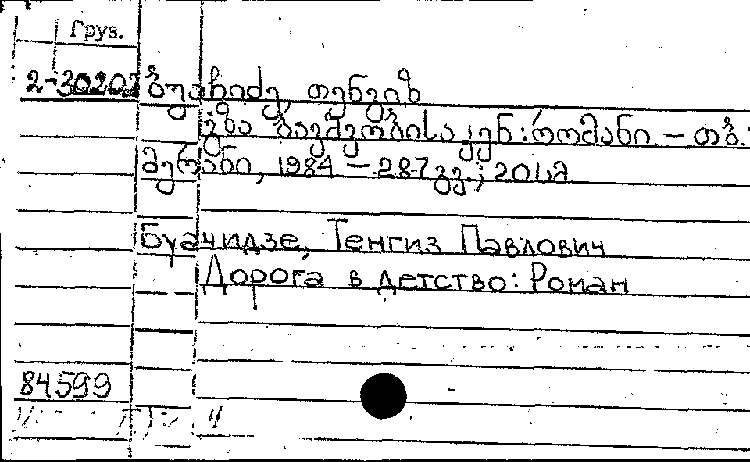 Груз.
2-30202 ბუაჩიძე, თენგიზ
გზა ბავშვობისაკენ: რომანი – თბ.:
მერანი, 1984 – 287 გვ.; 20 სმ
Буачидзе, Тенгиз Павлович
Дорога в детство: Роман
84599